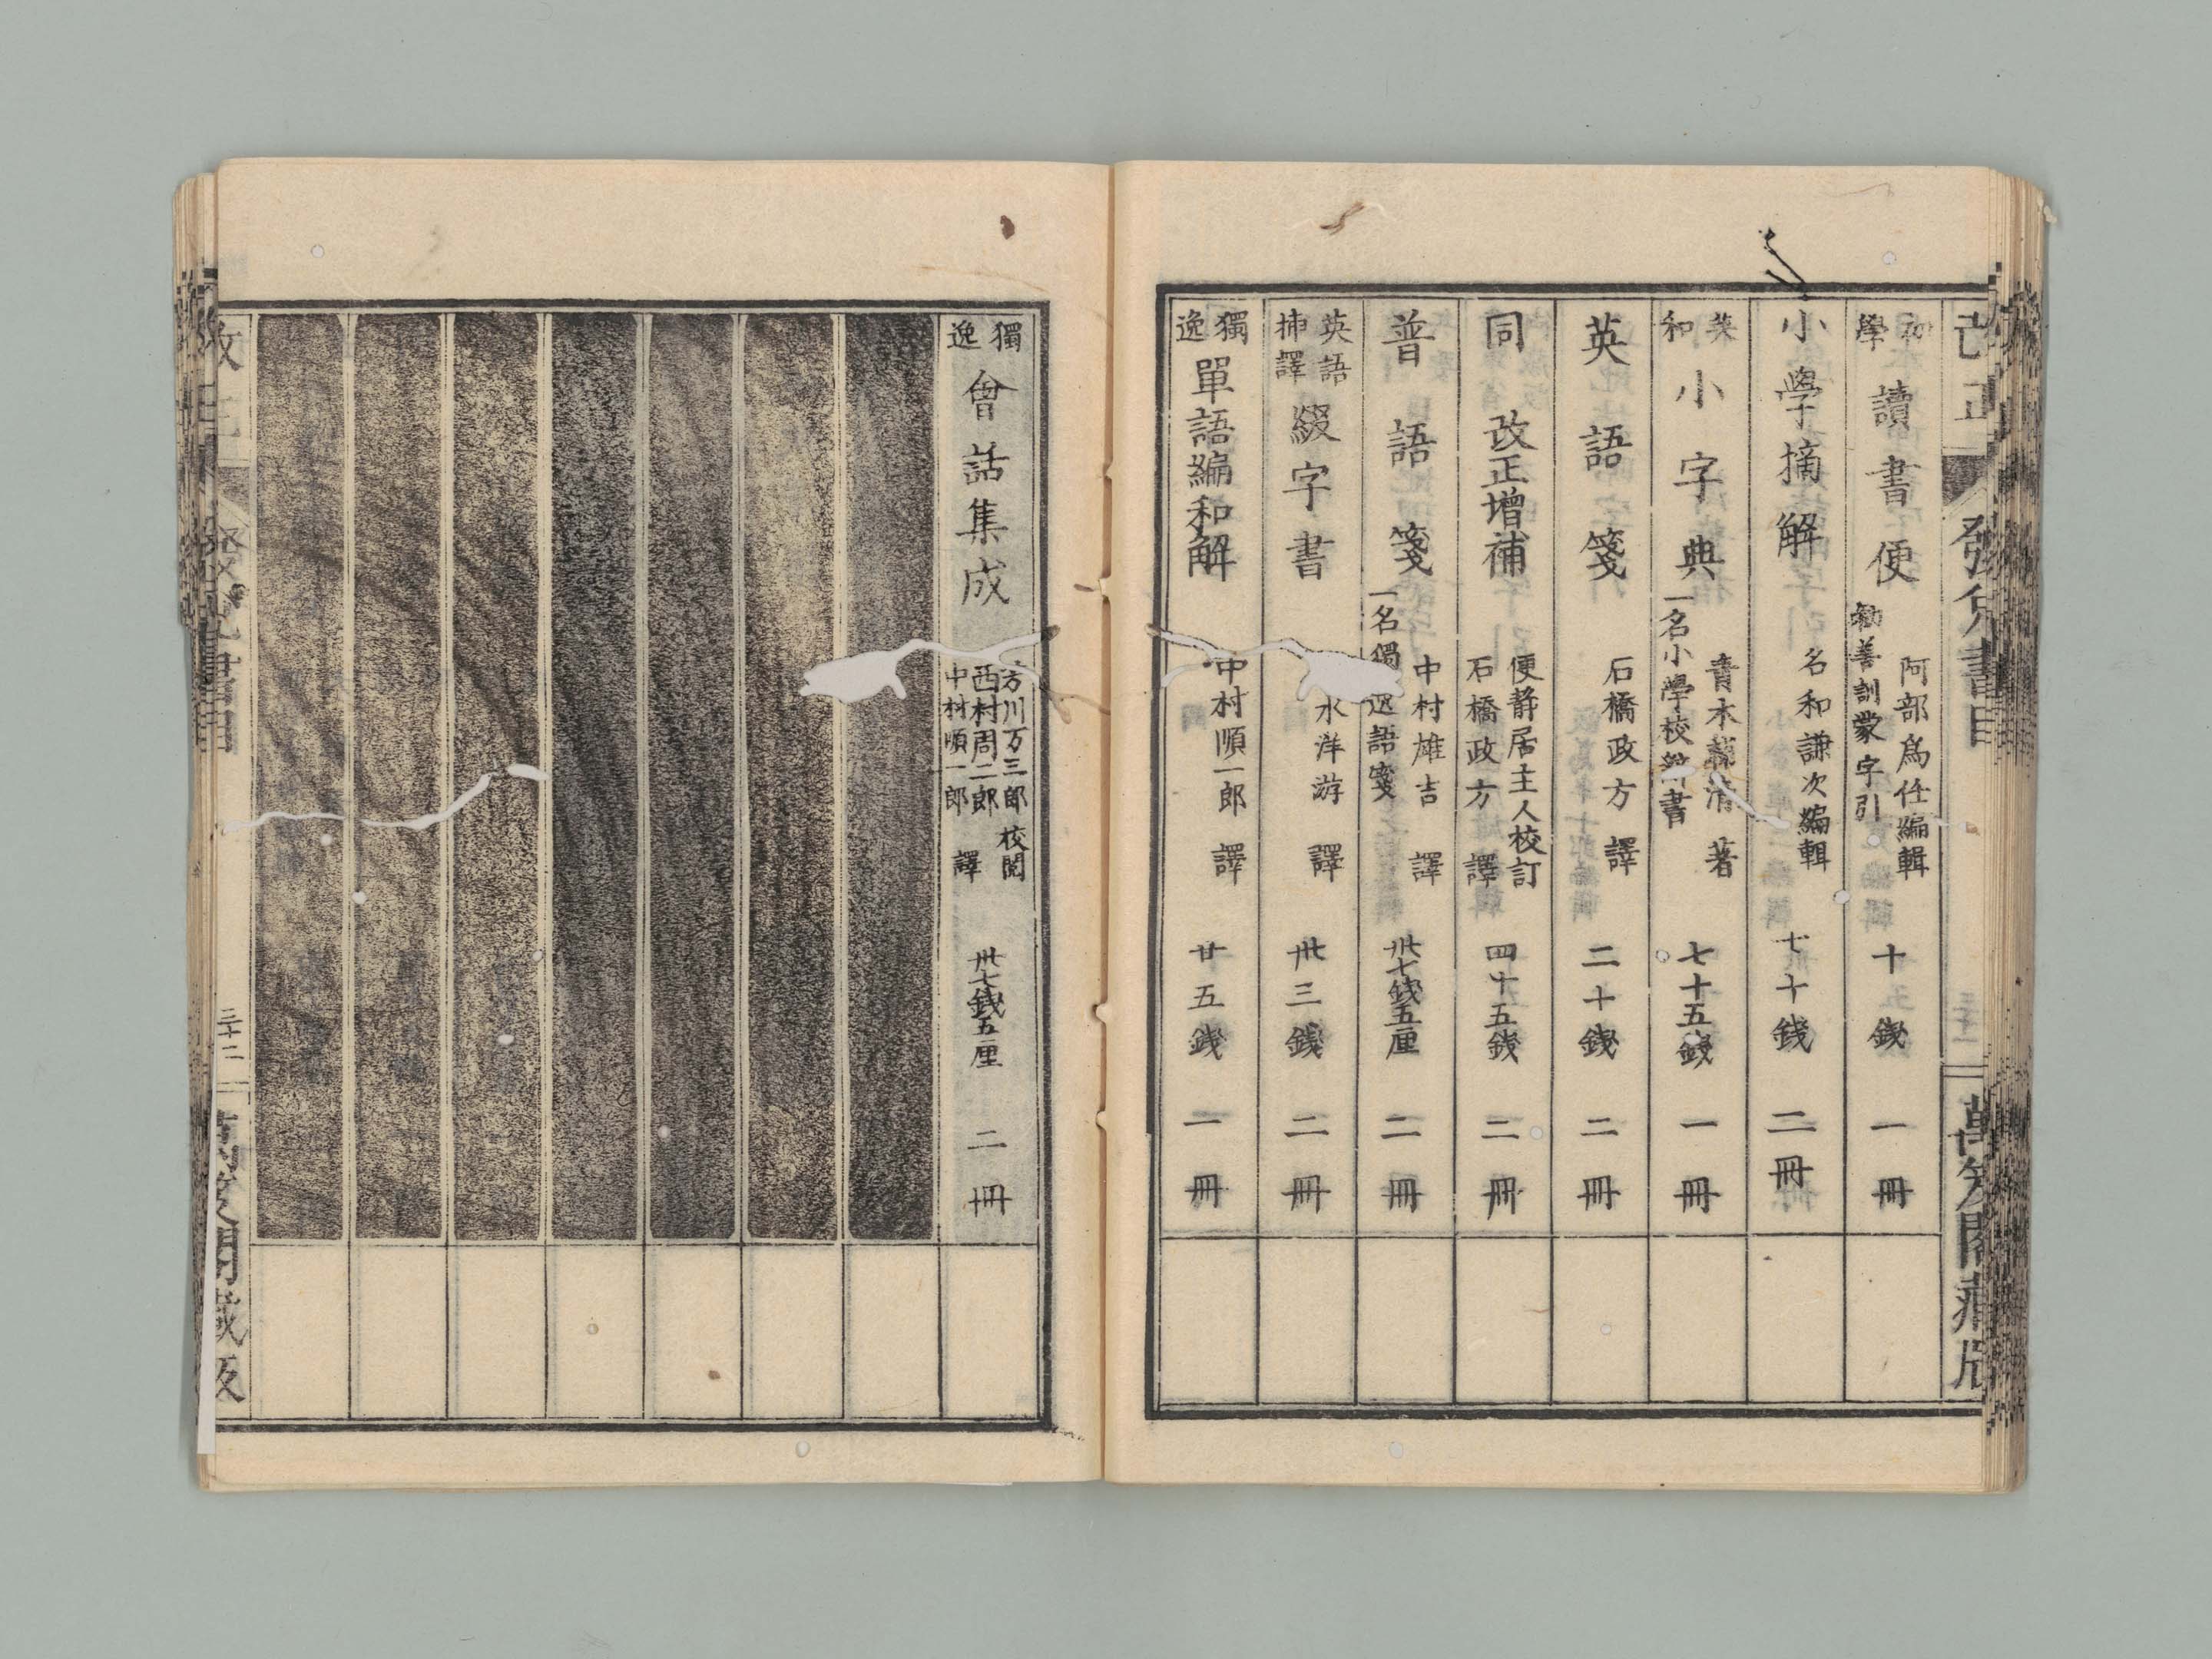 發兌書目
初學 讀書便 勸善訓蒙字引 阿部爲任編輯 十錢 一冊
小學摘解 名和謙次編輯 七十錢 二冊
英和 小字典 一名小學校辭書 青木輔清著 七十五錢 一冊
英語箋 石橋政方譯 二十錢 二冊
同 改正增補 便静居主人校訂 石橋政方譯 四十五錢 二冊
普語箋 一名獨逸語箋 中村雄吉譯 卅七錢五厘 二冊
英語挿譯 綴字書 水洋游譯 卅三錢 二冊
獨逸 單語編和解 中村順一郎譯 廿五錢 一冊
獨逸 會話集成 方川万三郎 西村周二郎 校閲 中村順一郎 譯 卅七錢五厘 二冊
三十二